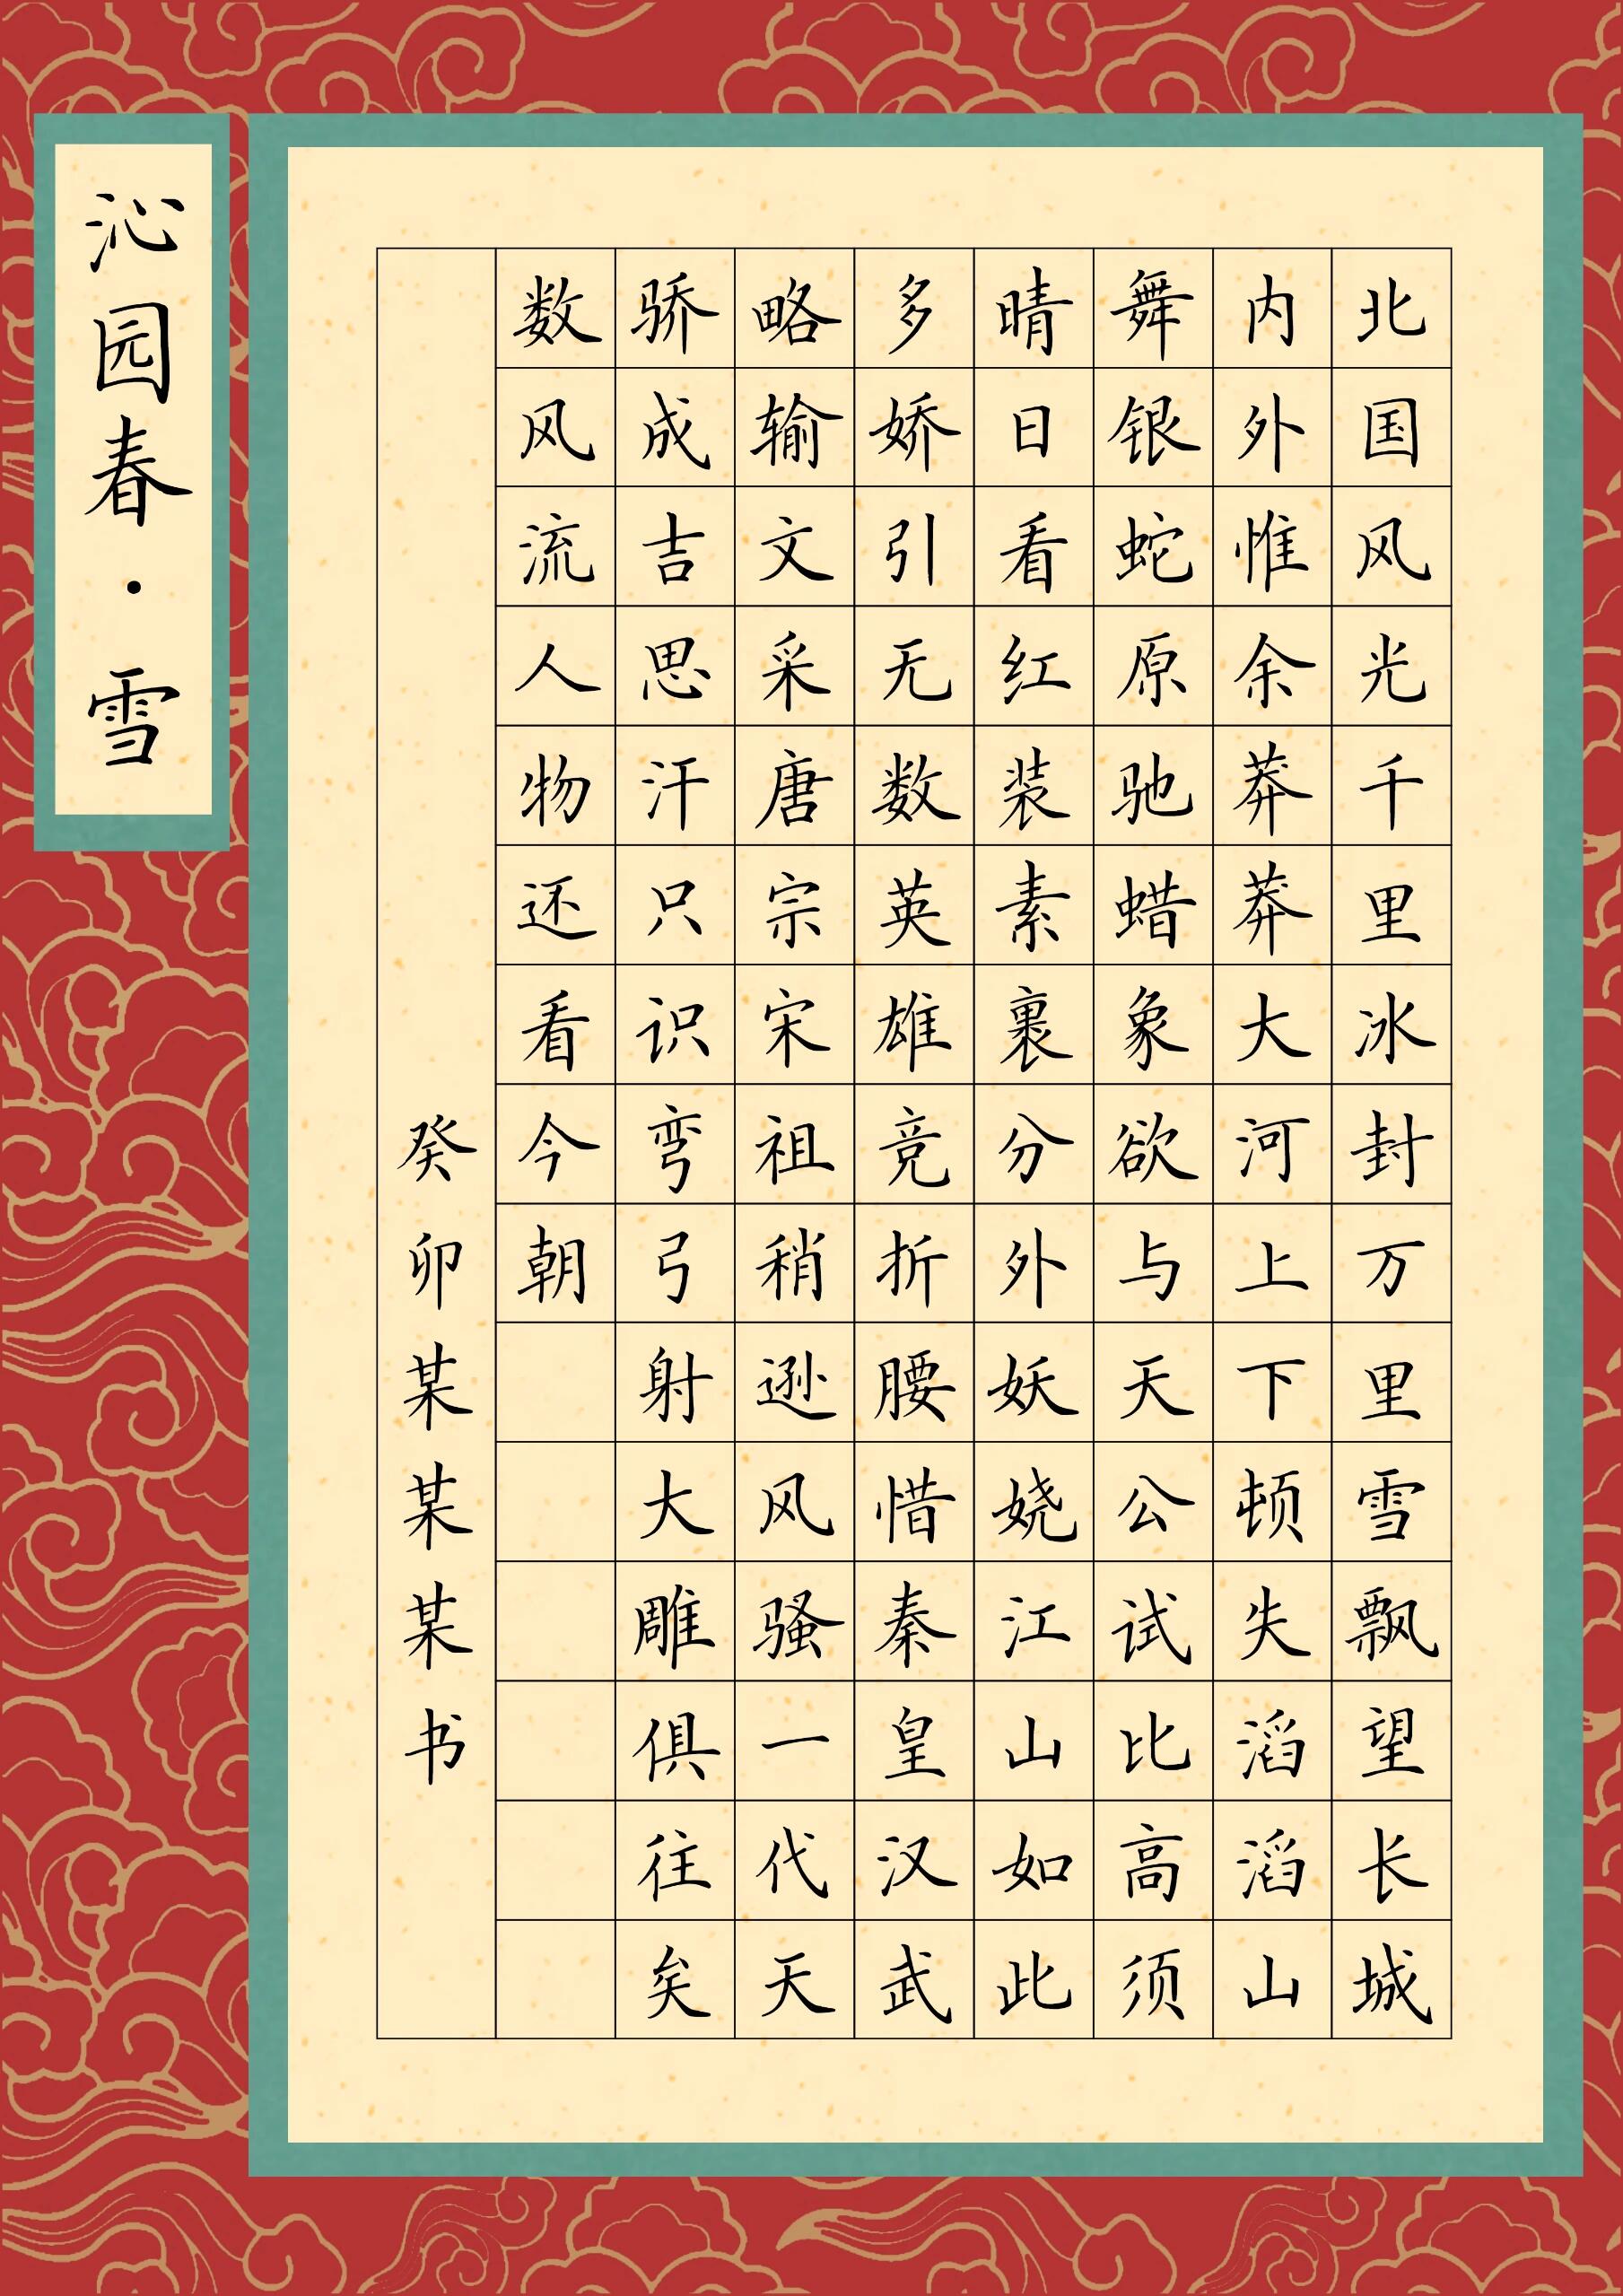 沁园春·雪
北国风光千里冰封万里雪飘望长城
内外惟余莽莽大河上下顿失滔滔山
舞银蛇原驰蜡象欲与天公试比高须
晴日看红装素裹分外妖娆江山如此
多娇引无数英雄竞折腰惜秦皇汉武
略输文采唐宗宋祖稍逊风骚一代天
骄成吉思汗只识弯弓射大雕俱往矣
数风流人物还看今朝
癸卯某某某书